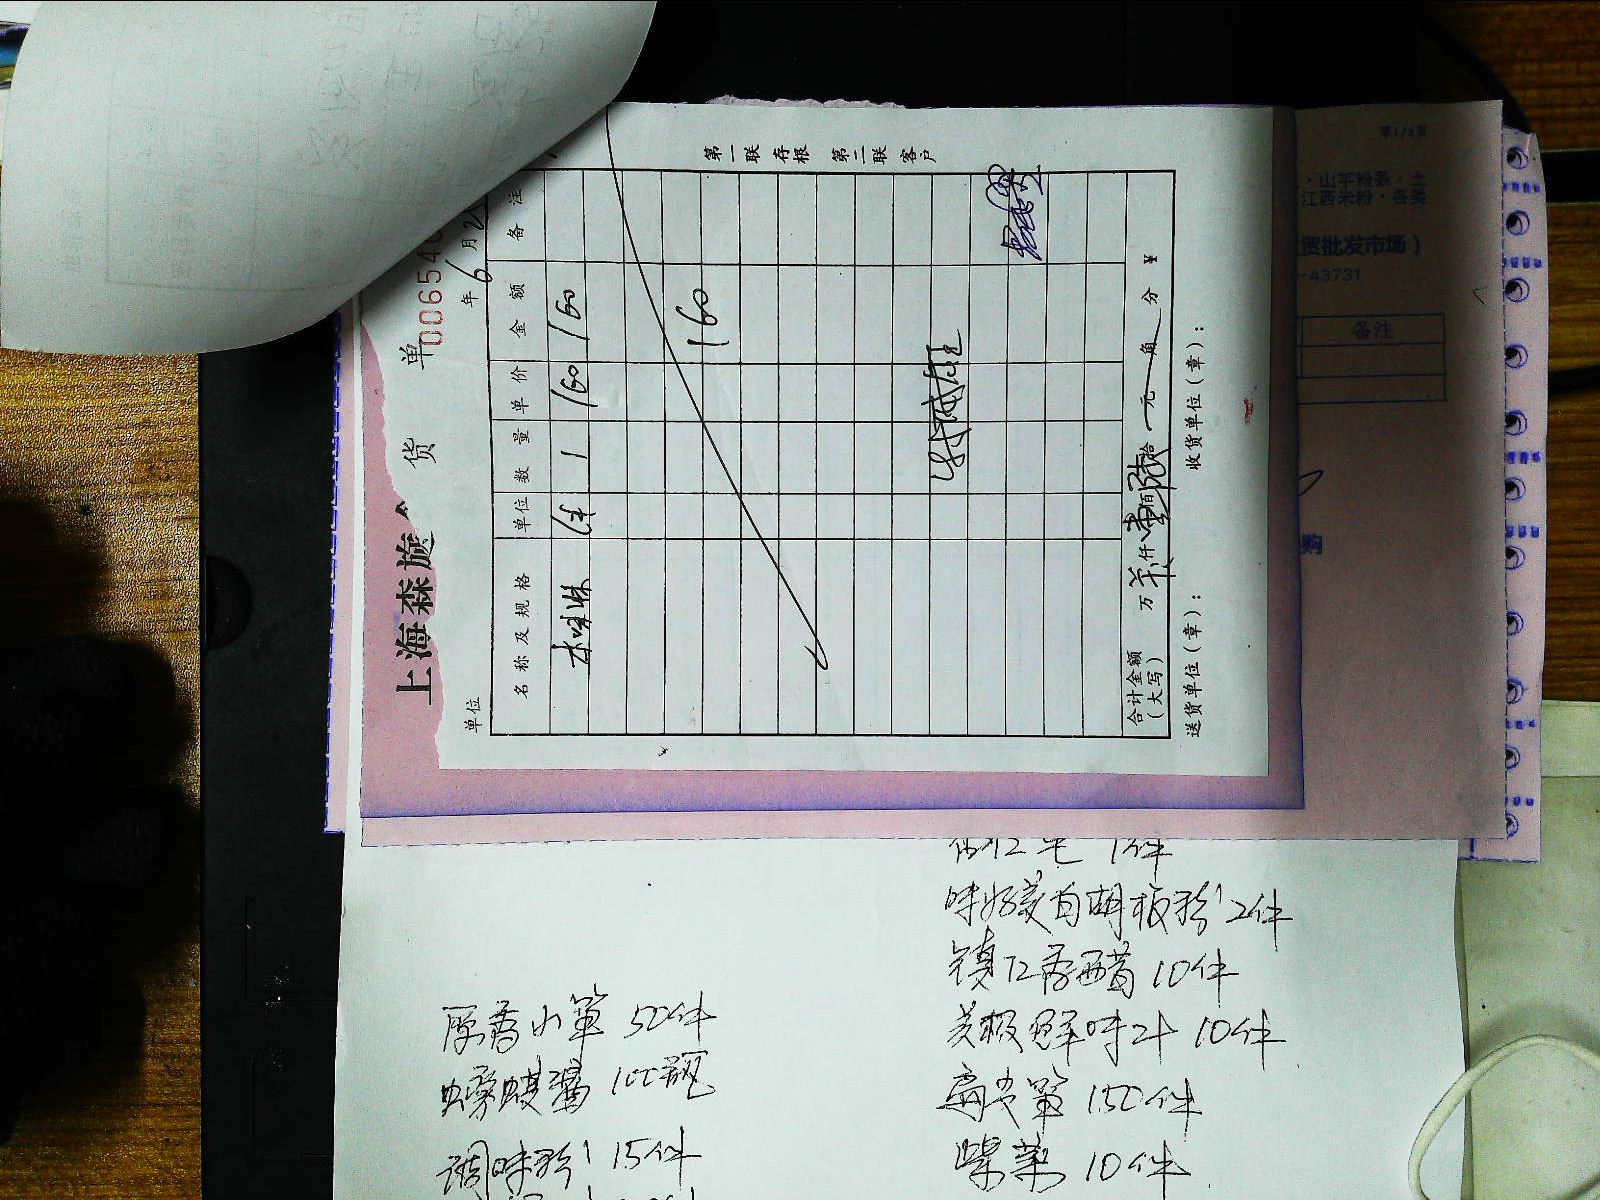 上海森旋
货 单
006540
年 6 月 2
单位
名称及规格 单位 数量 单价 金额 备注
本味淋 件 1 160 160
160
合计金额(大写) 万 仟 壹佰 陆拾 元 角 分 ¥
送货单位(章): 收货单位(章):
第一联存根 第二联客户
第1/1页
·山芋粉条·土
江西米粉·各类
货批发市场)
-43731
备注
购
1件
味好美白胡椒粉 2件
镇江香醋 10件
美极鲜味汁 10件
扁尖笋 150件
紫菜 10件
原香小笋 50件
100瓶
调味粉 15件